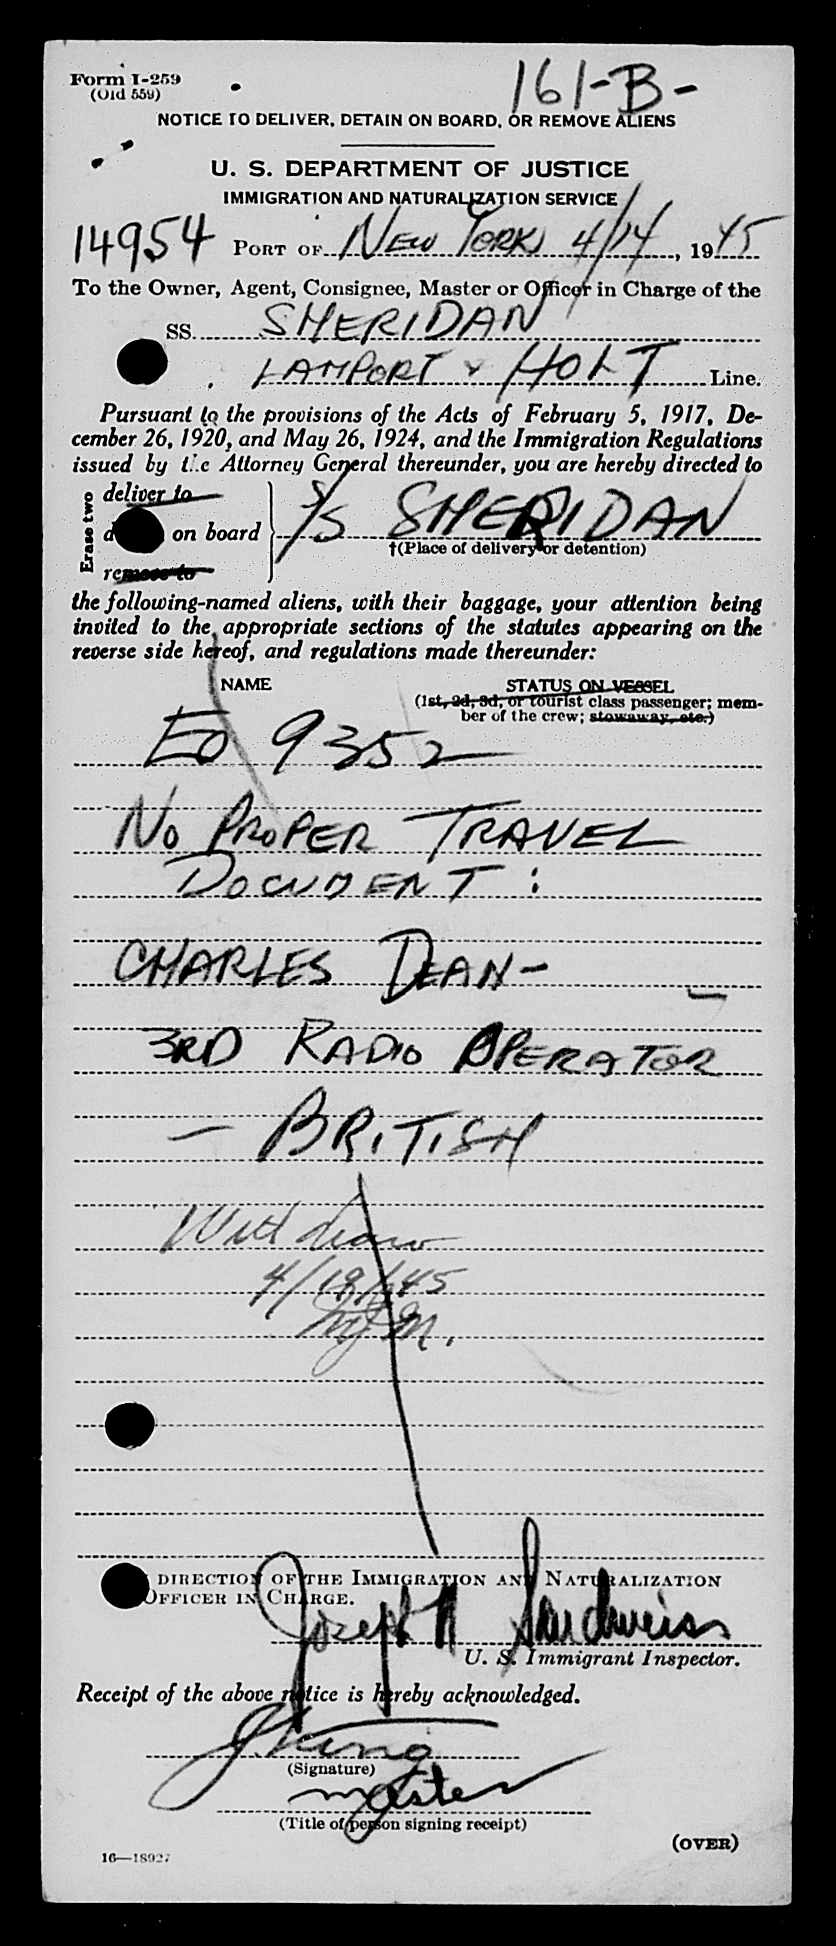 Form I-259
(Old 559)
161-B-
NOTICE TO DELIVER, DETAIN ON BOARD, OR REMOVE ALIENS
U. S. DEPARTMENT OF JUSTICE
IMMIGRATION AND NATURALIZATION SERVICE
14954 PORT OF NEW YORK 4/14, 1945
To the Owner, Agent, Consignee, Master or Officer in Charge of the
SS. SHERIDAN
LAMPORT & HOLT Line.
Pursuant to the provisions of the Acts of February 5, 1917, De-
cember 26, 1920, and May 26, 1924, and the Immigration Regulations
issued by the Attorney General thereunder, you are hereby directed to
Erase two
deliver to
on board
remove to
S/S SHERIDAN
†(Place of delivery or detention)
the following-named aliens, with their baggage, your attention being
invited to the appropriate sections of the statutes appearing on the
reverse side hereof, and regulations made thereunder:
NAME STATUS ON VESSEL
(1st, 2d, 3d, or tourist class passenger; mem-
ber of the crew; stowaway, etc.)
EO 9352
NO PROPER TRAVEL
DOCUMENT :
CHARLES DEAN-
3RD RADIO OPERATOR
- BRITISH
Withdraw
4/18/45
DIRECTION OF THE IMMIGRATION AND NATURALIZATION
OFFICER IN CHARGE.
Joseph N Sandweiss
U. S. Immigrant Inspector.
Receipt of the above notice is hereby acknowledged.
J. King
(Signature)
master
(Title of person signing receipt)
(OVER)
16—18927